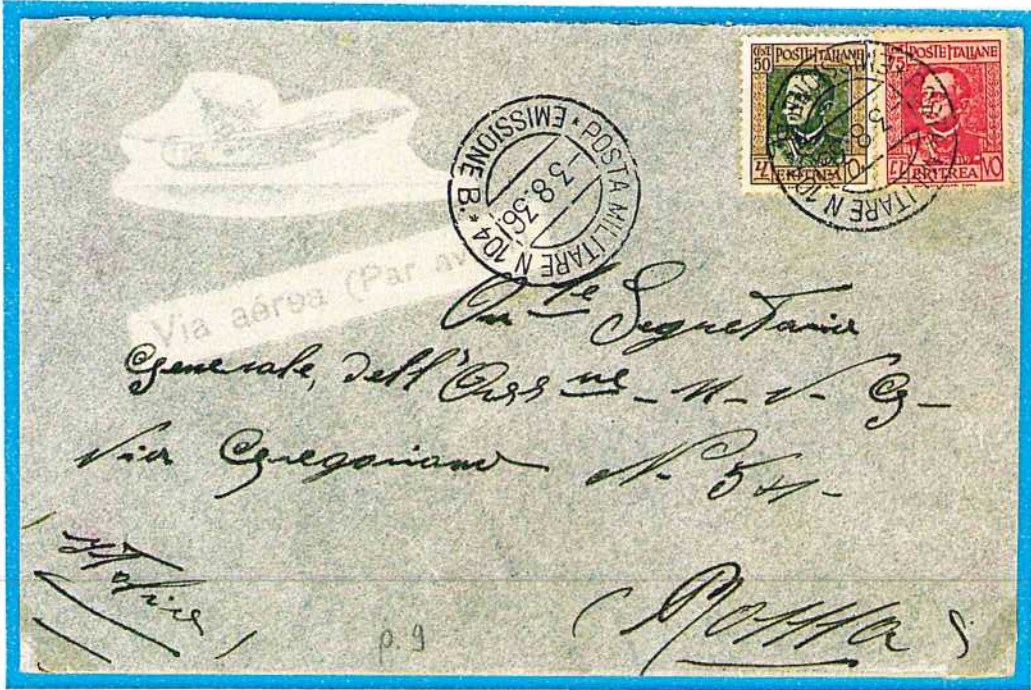 CENT. 50 POSTE ITALIANE
ERITREA
75 POSTE ITALIANE
ERITREA
POSTA MILITARE N 104 * EMISSIONE B. *
-3.8.36
Via aérea (Par av
On.le Segretario
Generale, dell'Ass.ne - N - V - G -
Via Gregoriana N. 54 -
Italia
(Roma)
p. 9